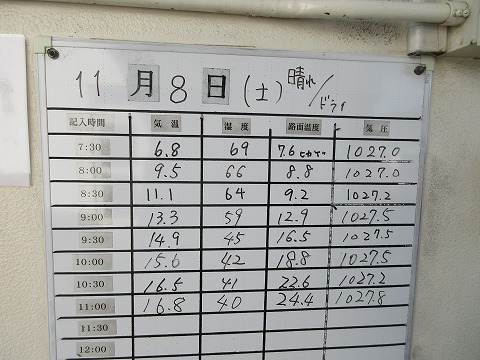 11月8日(土) 晴れ/ドライ
記入時間 気温 湿度 路面温度 気圧
7:30 6.8 69 7.6 1027.0
8:00 9.5 66 8.8 1027.0
8:30 11.1 64 9.2 1027.2
9:00 13.3 59 12.9 1027.5
9:30 14.9 45 16.5 1027.5
10:00 15.6 42 18.8 1027.5
10:30 16.5 41 22.6 1027.2
11:00 16.8 40 24.4 1027.8
11:30
12:00